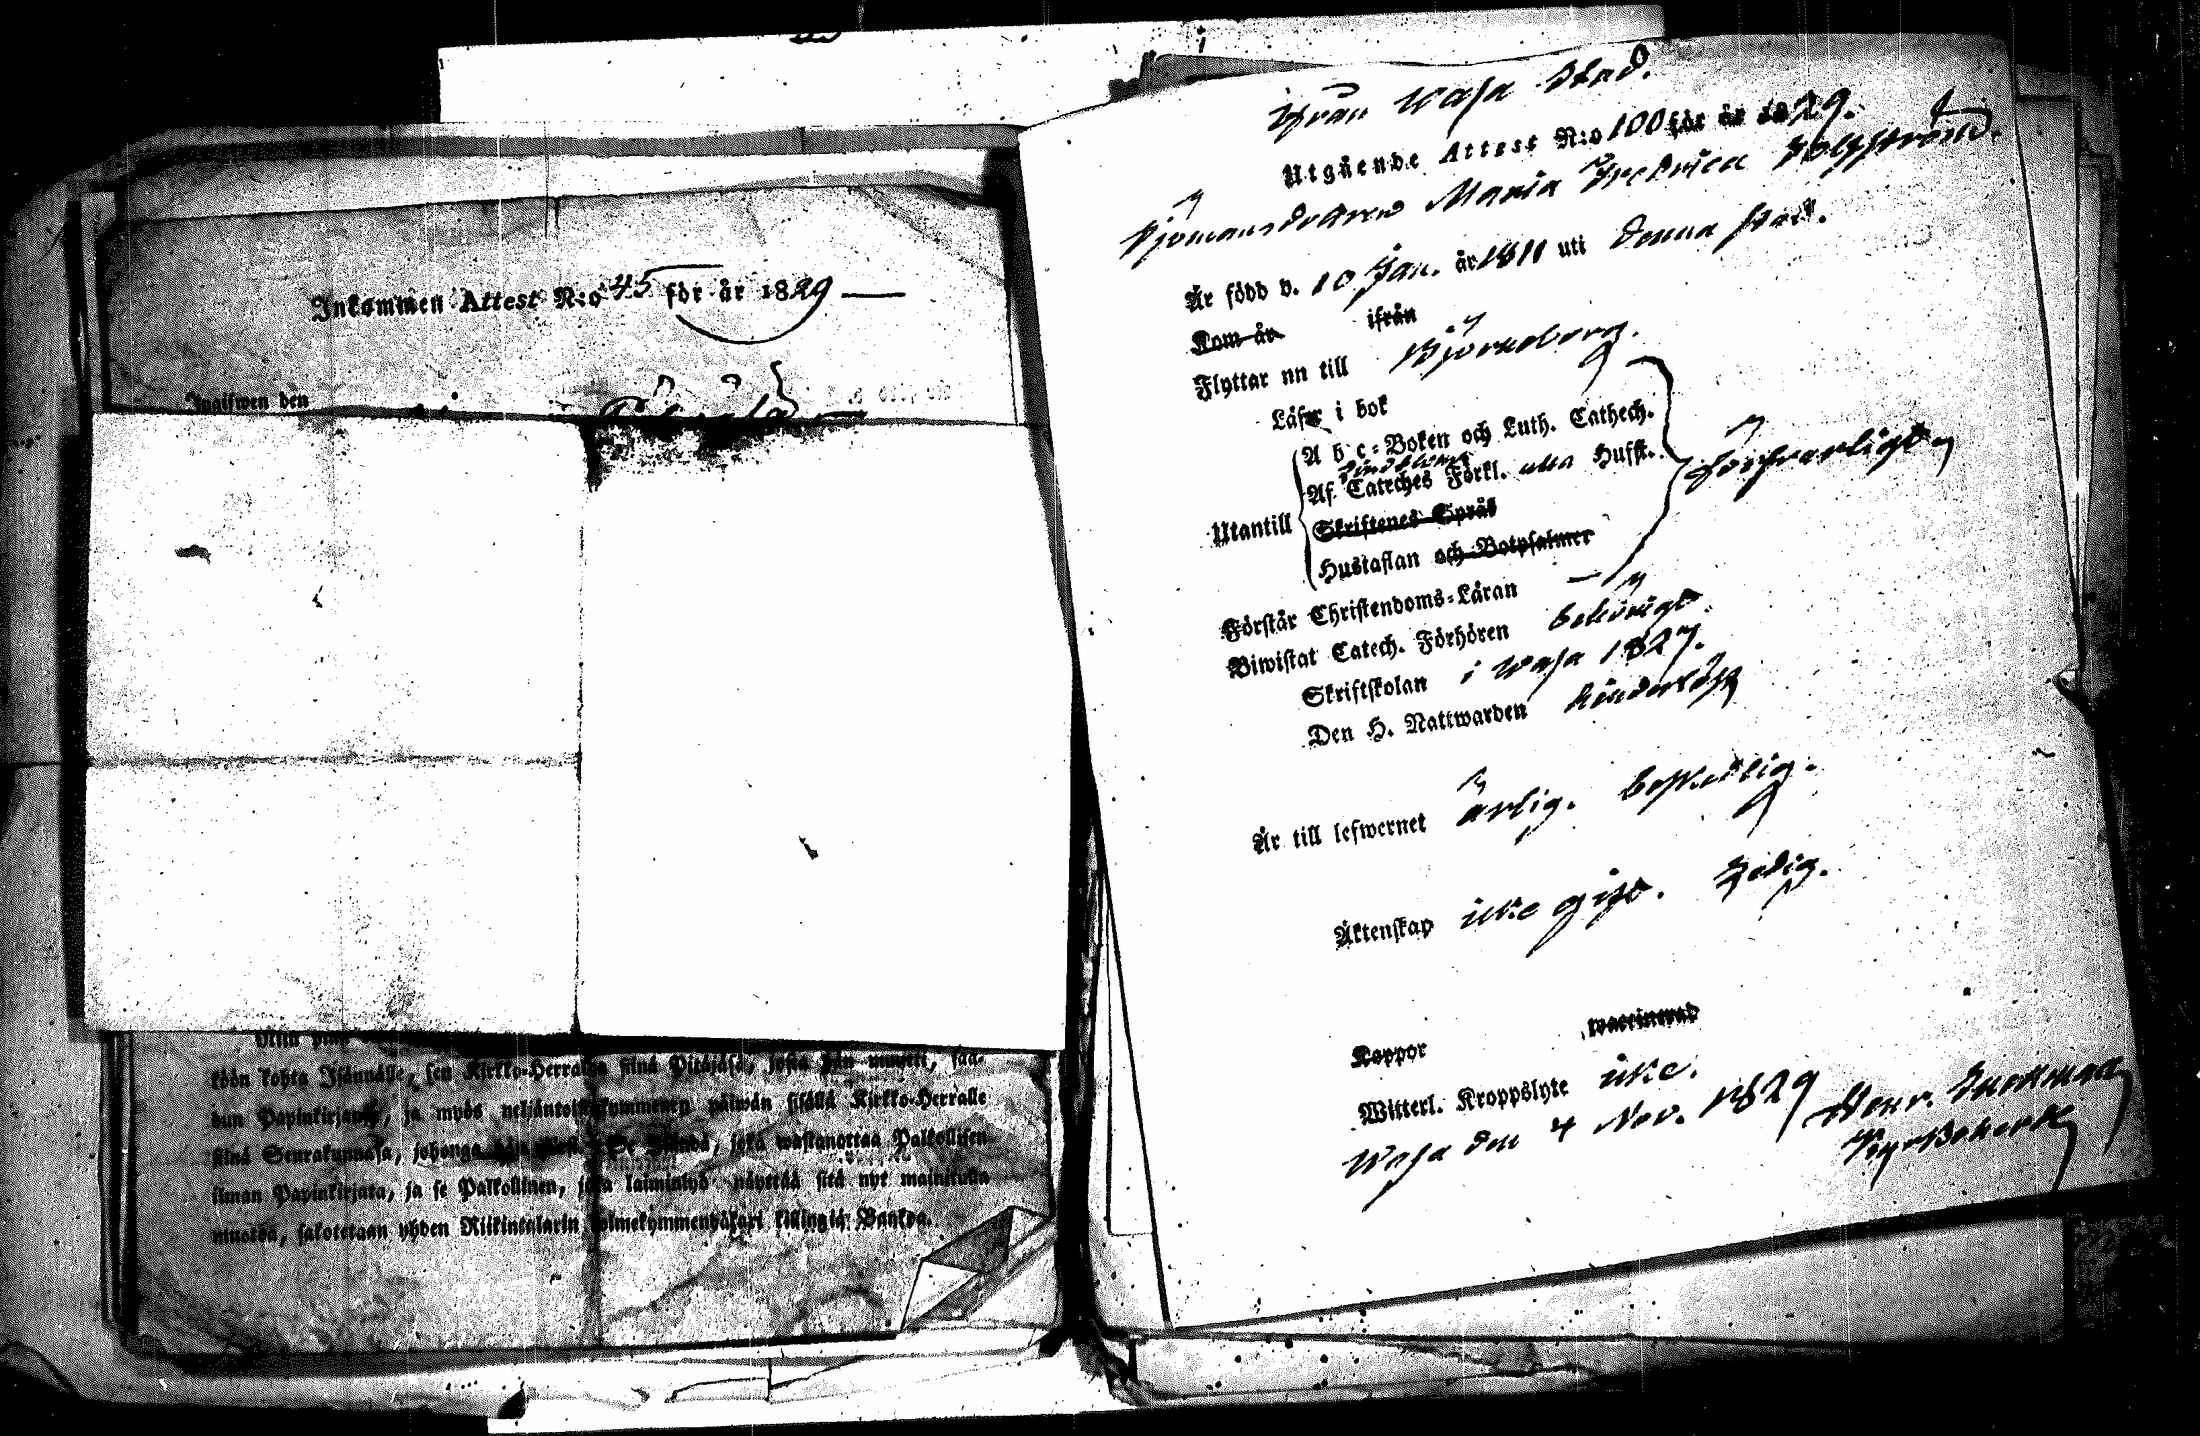 Inkommen Attest N:o 45 för år 1829
Inalfwen den
köön kohta Isännälle, sen Kirkko-Herralta siinä Pitäjäsä, josta hän muutti, saa-
dun Papinkirjanſa, ja myös neljäntoistakymmenen päiwän sisällä Kirkko-Herralle
siinä Seurakunnasa, johonga hän tuli. Se Isändä, joka wastanottaa Palkollisen
ilman Papinkirjata, ja se Palkollinen, joka laiminlyö näyttää sitä nyt mainitulla
muotoa, sakotetaan yhden Riikintalarin kolmekymmentäkaxi killingiä Bankoa.
Ifrån Wasa Stad.
Utgående Attest N:o 100 för år 1829.
Sjömansdottren Maria Fredrica
Är född d. 10 Jan. år 1811 uti denna stad.
Kom år ifrån
Flyttar nu till Björneborg.
Läser i bok
A b c-Boken och Luth. Cathech.
Af Cateches Förkl. utan Husst.
försvarligt
Utantill
Skriftenes Språk
Hustaflan och Botpsalmer
Förstår Christendoms-Läran
Biwistat Catech. Förhören behörigt.
Skriftskolan i Wasa 1827.
Den H. Nattwarden hinderlöst
Är till lefwernet ärlig. beskedlig.
Äktenskap icke gift. Ledig.
Koppor waccinerad
Witterl. Kroppslyte icke.
Wasa den 4 Nov. 1829 Henr. Backman